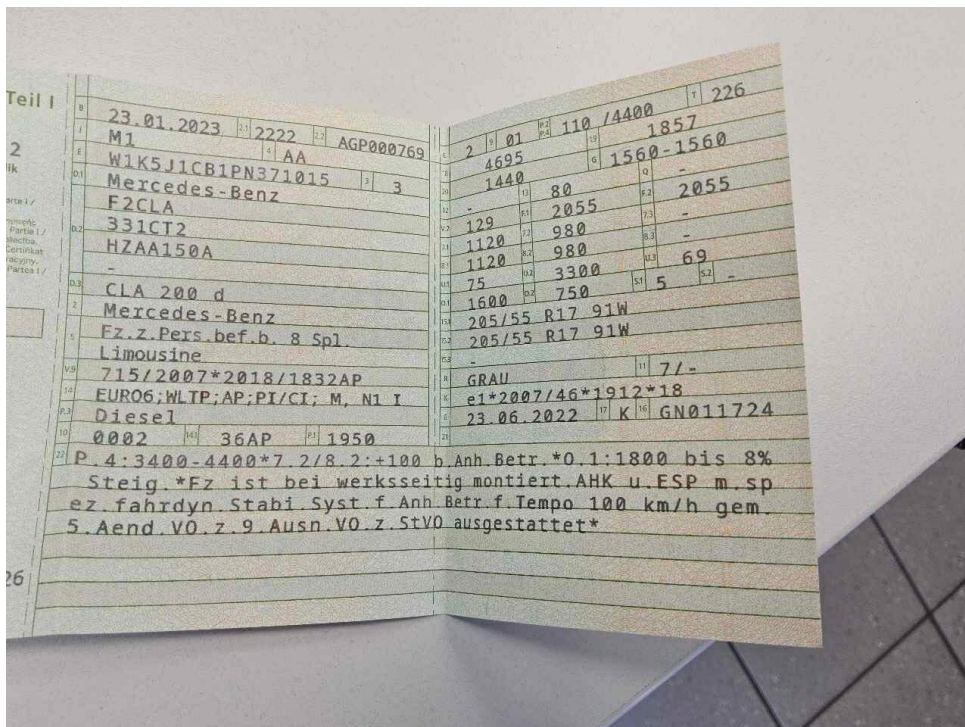 Teil I
2
26
B 23.01.2023 2.1 2222 2.2 AGP000769
J M1 4 AA
E W1K5J1CB1PN371015 3 3
D.1 Mercedes-Benz
F2CLA
D.2 331CT2
HZAA150A
-
D.3 CLA 200 d
2 Mercedes-Benz
5 Fz.z.Pers.bef.b. 8 Spl.
Limousine
V.9 715/2007*2018/1832AP
14 EURO6;WLTP;AP;PI/CI; M, N1 I
P.3 Diesel
10 0002 14.1 36AP P.1 1950
2 9 01 P.2 P.4 110 /4400 T 226
4695 19 1857
20 1440 G 1560-1560
12 - 13 80 Q -
V.7 129 F.1 2055 F.2 2055
1120 7.2 980 7.3 -
8.1 1120 8.2 980 8.3 -
U.1 75 U.2 3300 U.3 69
O.1 1600 O.2 750 S.1 5 S.2 -
15.1 205/55 R17 91W
15.2 205/55 R17 91W
15.3 -
R GRAU 11 7/-
K e1*2007/46*1912*18
6 23.06.2022 17 K 16 GN011724
21
22 P.4:3400-4400*7.2/8.2:+100 b.Anh.Betr.*O.1:1800 bis 8%
Steig.*Fz ist bei werksseitig montiert.AHK u.ESP m.sp
ez.fahrdyn.Stabi.Syst.f.Anh.Betr.f.Tempo 100 km/h gem.
5.Aend.VO.z.9.Ausn.VO.z.StVO ausgestattet*